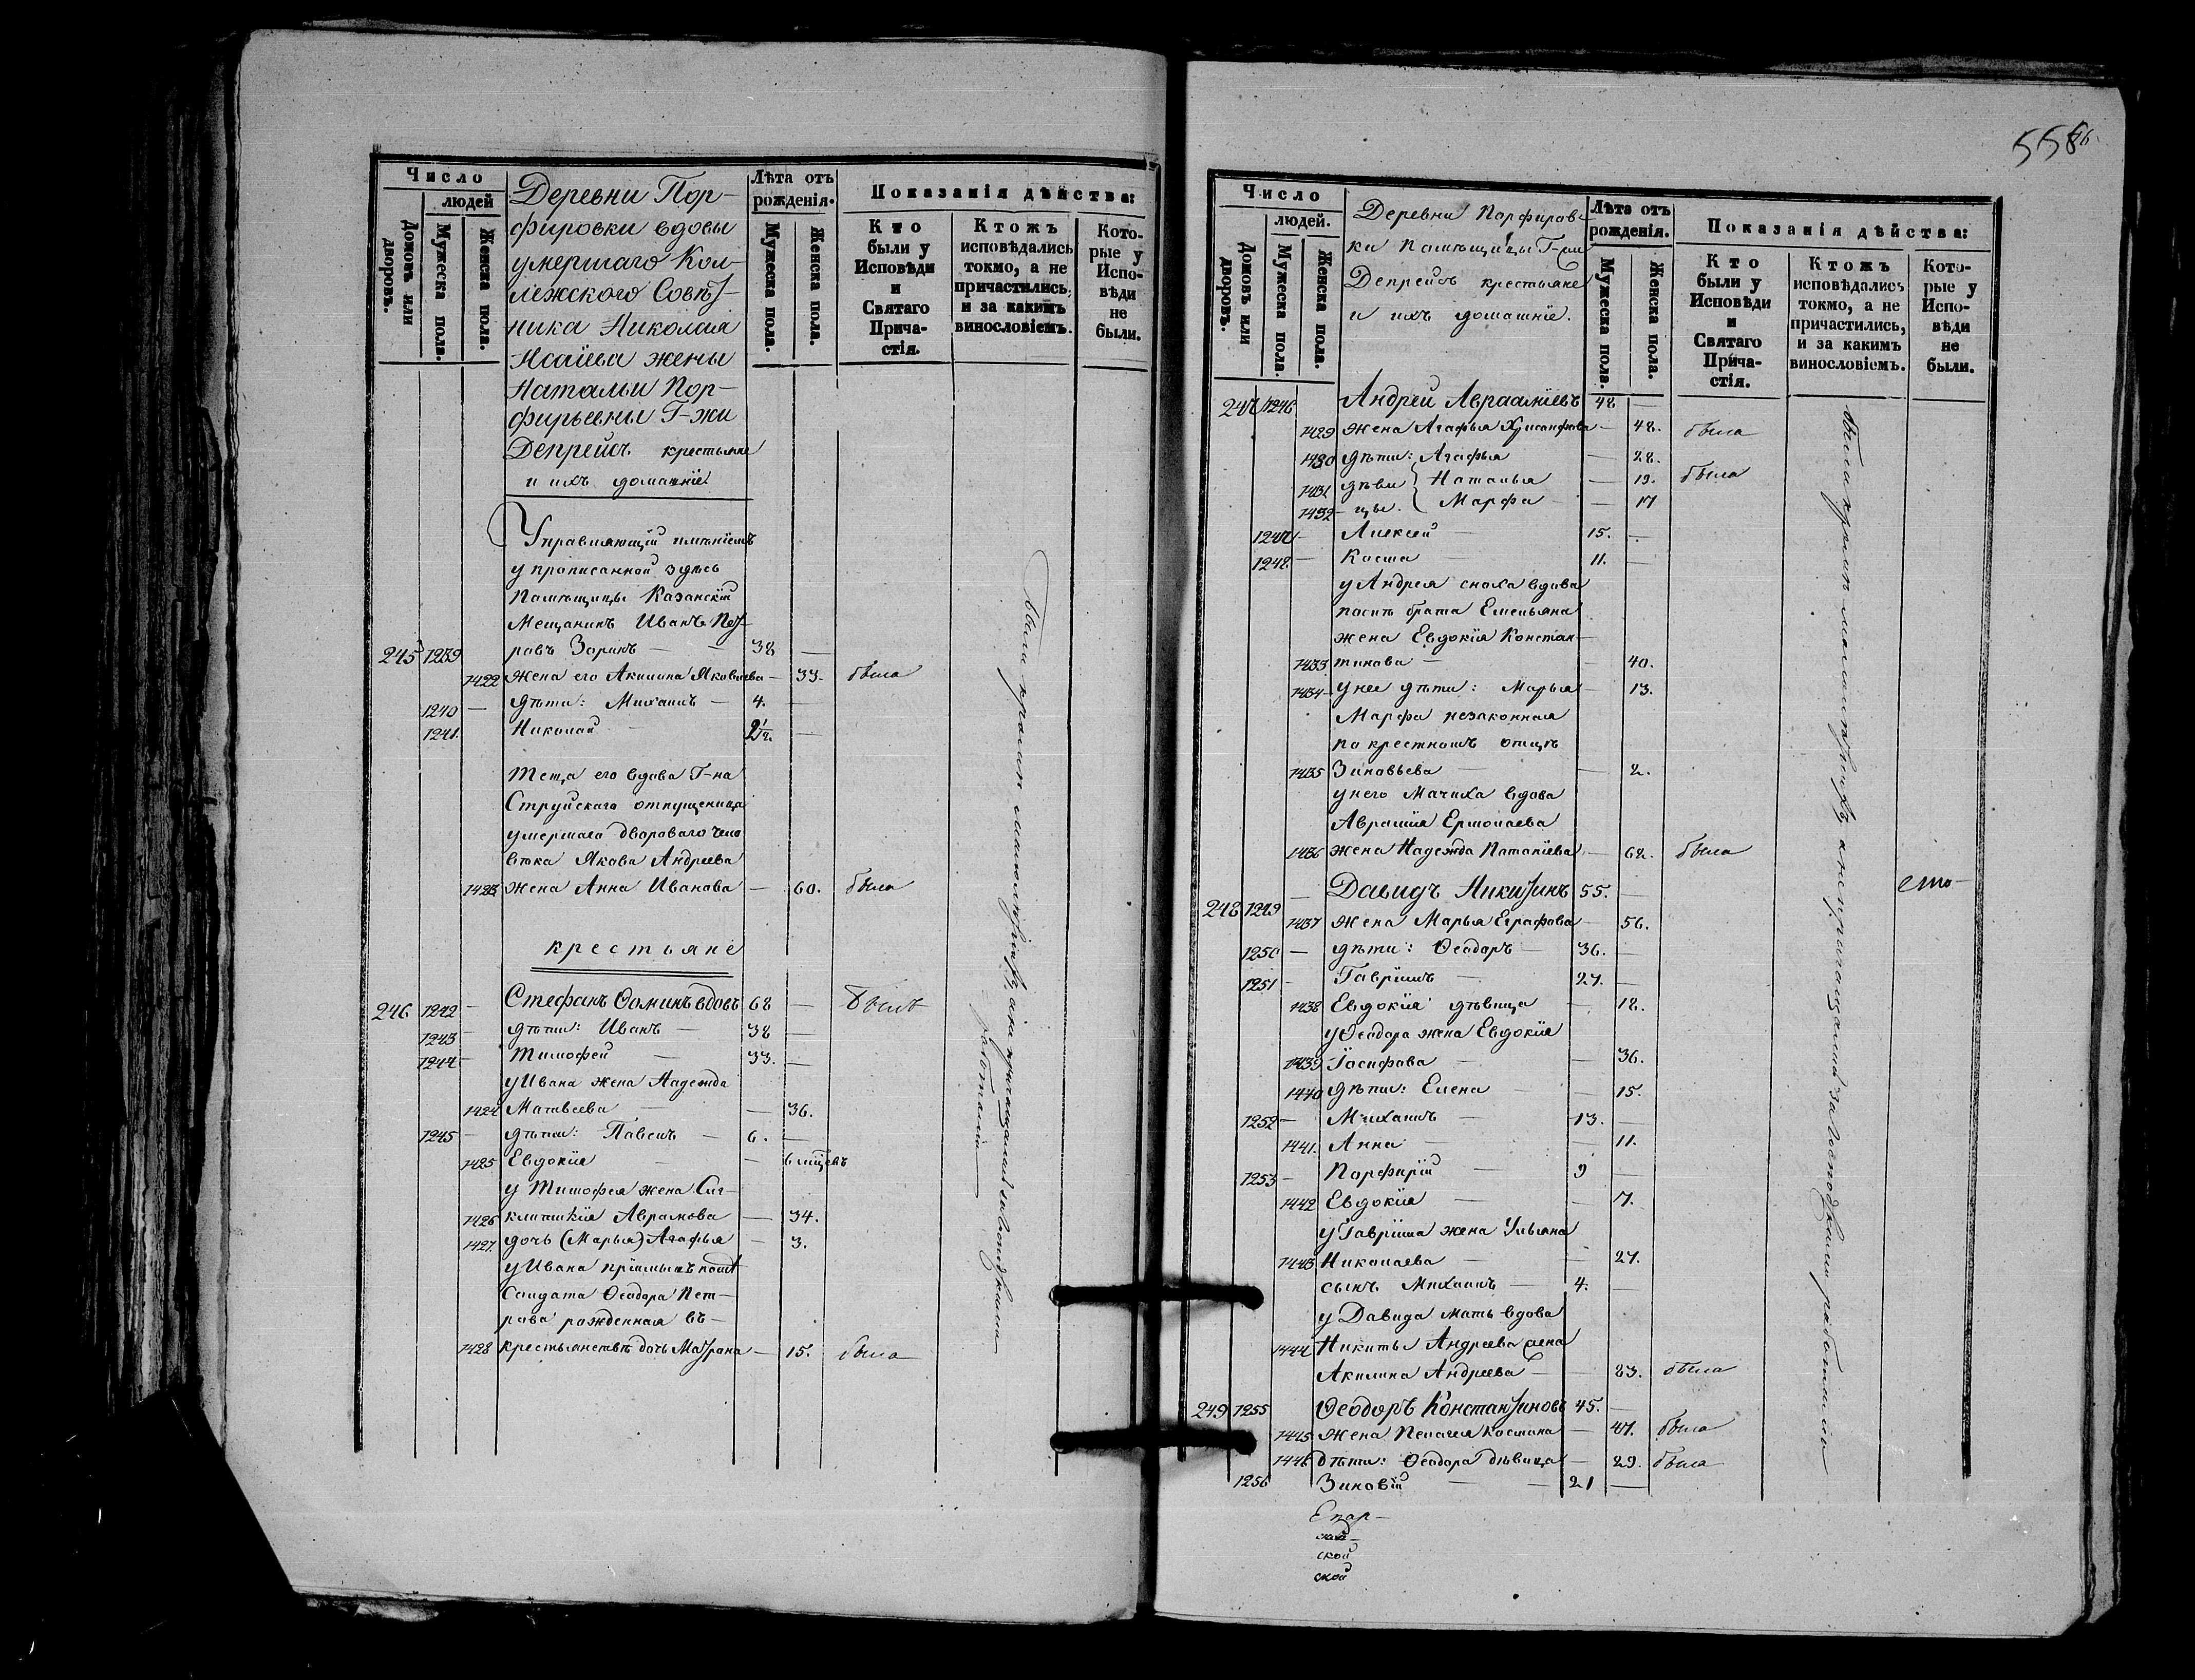 Число
людей
Домовъ или дворовъ.
Мужеска пола.
Женска пола.
Деревни Пор-
фировки вдовы
умершаго Кол-
лежскаго Совѣт-
ника Николая
Исаіева жены
Натальи Пор-
фирьевны Г-жи
Депрейсъ крестьяне
и ихъ домашніе
Лѣта отъ рожденія.
Мужеска пола.
Женска пола.
Показанія дѣйства:
Кто были у Исповѣди и Святаго Прича-стія.
Ктожъ исповѣдались токмо, а не причастились, и за какимъ винословіемъ.
Кото-рые у Испо-вѣди не были.
Управляющій имѣніемъ
у прописанной здѣсь
Помѣщицы Казанскій
Мещанинъ Иванъ Пет-
245 1239 ровъ Зоринъ — — 38 —
1422 жена его Акилина Яковлева — 33. была
1240 — дѣти: Михаилъ — 4. —
1241. Николай — 2 1/2. —
теща его вдова Г-на
Струйскаго отпущеница
умершаго двороваго чело
вѣка Якова Андреева
1423 жена Анна Иванова — 60. была
крестьяне
246 1242 — Стефанъ Ѳоминъ вдовъ 68 — былъ
1243 — дѣти: Иванъ — 38 —
1244 — Тимофей — 33. —
у Ивана жена Надежда
1424 Матвеева — — 36.
1245 — дѣти: Павелъ — 6. —
1425 Евдокія — — 6 мѣцевъ
у Тимофея жена Сиг-
1426 клитикія Аврамова — 34.
1427. дочь (Марья) Агафья — 3.
у Ивана пріимышъ
Солдата Ѳеодора Пет-
рова рожденная въ —
1428 крестьянствѣ дочь Матрона — 15. была
была кромѣ а не причащались за
работами
558
Число
людей.
Домовъ или дворовъ.
Мужеска пола.
Женска пола.
Деревни Порфиров-
ки Помѣщицы Г-жи
Депрейсъ крестьяне
и ихъ домашніе.
Лѣта отъ рожденія.
Мужеска пола.
Женска пола.
Показанія дѣйства:
Кто были у Исповѣди и Святаго Прича-стія.
Ктожъ исповѣдались токмо, а не причастились, и за какимъ винословіемъ.
Кото-рые у Испо-вѣди не были.
247 1246 Андрей Авраамліевъ 48 —
1429 жена Агафья Хрисанфова — 48. была
1430 дѣти: Агафья — 28.
1431 дѣви Наталья — 19. была
1432 — цы. Марфа — — 17
1247 — Алексей — 15. —
1248 — Косма — 11. —
у Андрея сноха вдова
послѣ брата Емельяна
жена Евдокія Констан-
1433 тинова — — 40.
1434 — у нее дѣти: Марья — 13.
Марфа незаконная
по крестномъ отцѣ
1435 Зиновьева — — 2.
у него Мачиха вдова
Аврамія Ермолаева
1436 жена Надежда Потапіева — 62. была
248 1249 — Давидъ Никитинъ 55. —
1437 жена Марья Евграфова — 56.
1250 — дѣти: Ѳеодоръ — 36. —
1251 — Гаврішлъ — 27. —
1438 Евдокія дѣвица — 18.
у Ѳеодора жена Евдокія
1439 Іосифова — — 36.
1440 дѣти: Елена — — 15.
1252 — Михаилъ — 13. —
1441. Анна — — 11.
1253 — Порфирій — 9 —
1442 Евдокія — — 7.
у Гавріила жена Ульяна
1443 Николаева — — 27.
сынъ Михаилъ — 4. —
у Давида мать вдова
1444 Никиты Андреева жена
Акилина Андреева — — 83. была
249 1255 Ѳеодоръ Константиновъ 45. —
1445 жена Пелагея Космина — 47. была
1446 дѣти: Ѳеодора дѣвица — 29. была
1256 Зиновій — — 21 —
была кромѣ а не причащались за работами
Епар-
ской
ской